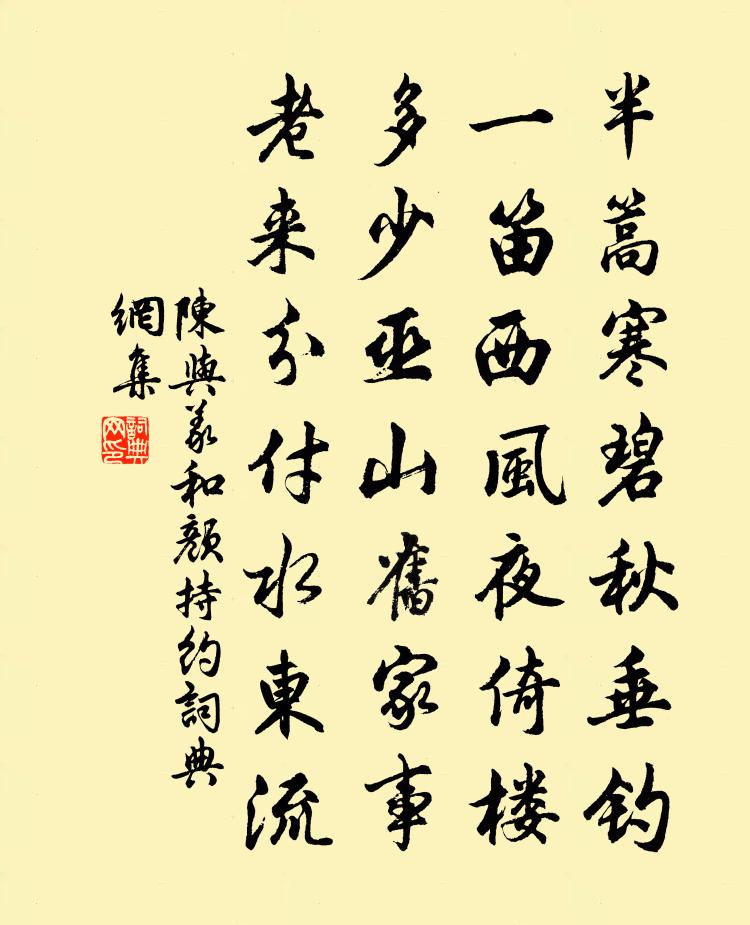 半篙寒碧秋垂钓
一笛西風夜倚楼
多少巫山舊家事
老来分付水東流
陳與義和顔持約詞典
網集
詞典
网印